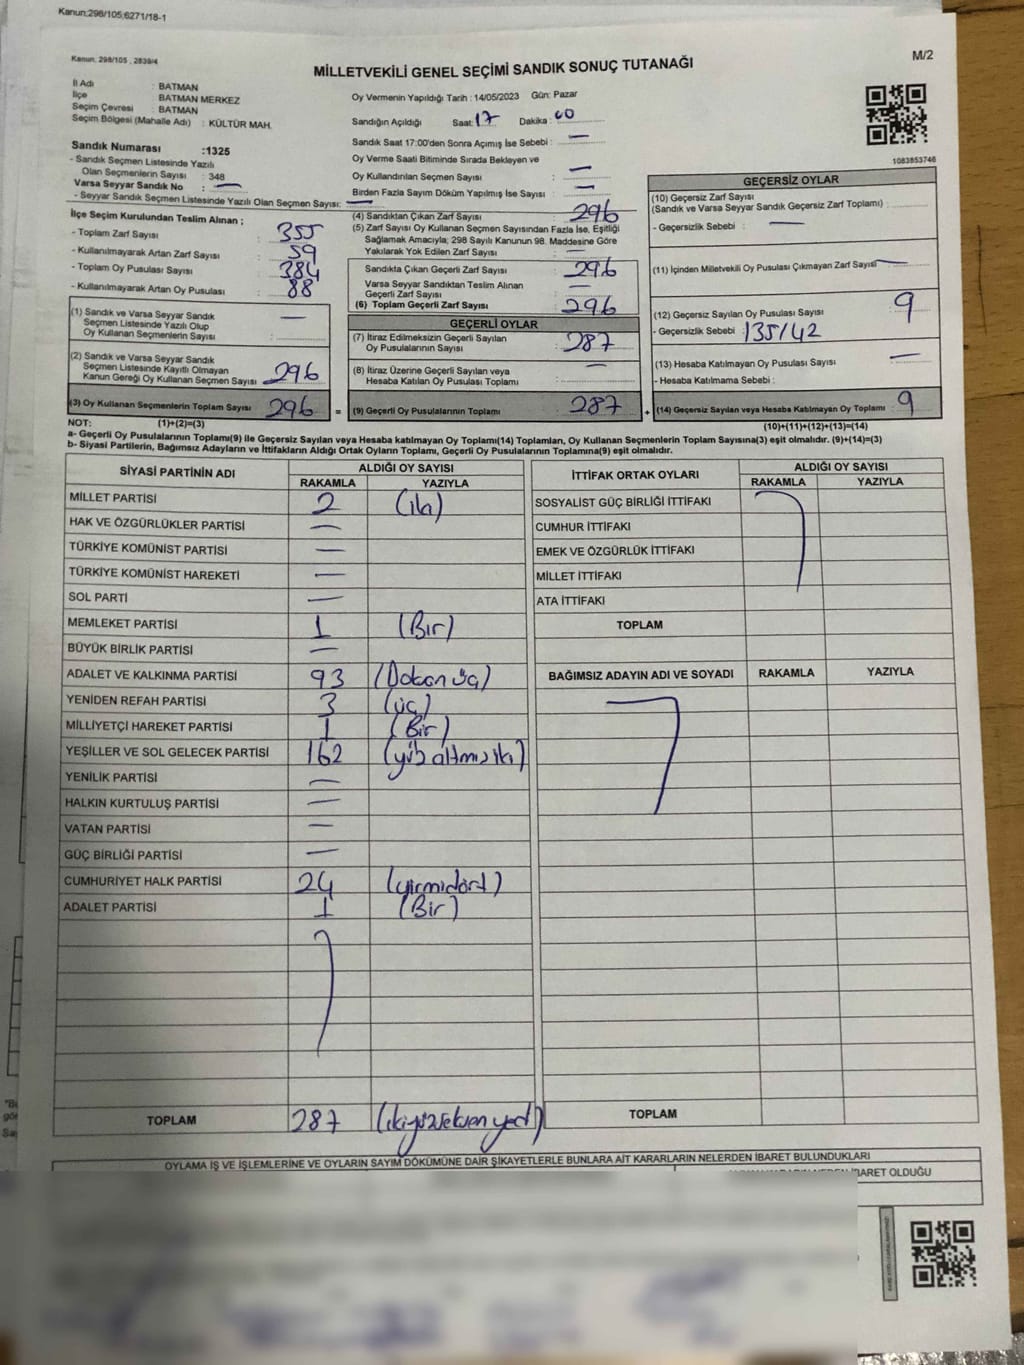 Kanun:298/105;6271/18-1
Kanun: 298/105 , 2839/4
M/2
MİLLETVEKİLİ GENEL SEÇİMİ SANDIK SONUÇ TUTANAĞI
İl Adı : BATMAN
İlçe : BATMAN MERKEZ
Seçim Çevresi : BATMAN
Seçim Bölgesi (Mahalle Adı) : KÜLTÜR MAH.
Sandık Numarası :1325
- Sandık Seçmen Listesinde Yazılı
Olan Seçmenlerin Sayısı : 348
Varsa Seyyar Sandık No : —
- Seyyar Sandık Seçmen Listesinde Yazılı Olan Seçmen Sayısı: —
Oy Vermenin Yapıldığı Tarih : 14/05/2023 Gün: Pazar
Sandığın Açıldığı Saat: 17 Dakika : 00
Sandık Saat 17:00'den Sonra Açımış İse Sebebi : —
Oy Verme Saati Bitiminde Sırada Bekleyen ve
Oy Kullandırılan Seçmen Sayısı : —
Birden Fazla Sayım Döküm Yapılmış İse Sayısı : —
1083853746
İlçe Seçim Kurulundan Teslim Alınan ;
- Toplam Zarf Sayısı : 355
- Kullanılmayarak Artan Zarf Sayısı : 59
- Toplam Oy Pusulası Sayısı : 384
- Kullanılmayarak Artan Oy Pusulası : 88
(1) Sandık ve Varsa Seyyar Sandık
Seçmen Listesinde Yazılı Olup
Oy Kullanan Seçmenlerin Sayısı : —
(2) Sandık ve Varsa Seyyar Sandık
Seçmen Listesinde Kayıtlı Olmayan
Kanun Gereği Oy Kullanan Seçmen Sayısı : 296
(3) Oy Kullanan Seçmenlerin Toplam Sayısı : 296
(4) Sandıktan Çıkan Zarf Sayısı : 296
(5) Zarf Sayısı Oy Kullanan Seçmen Sayısından Fazla İse, Eşitliği
Sağlamak Amacıyla; 298 Sayılı Kanunun 98. Maddesine Göre
Yakılarak Yok Edilen Zarf Sayısı : —
Sandıkta Çıkan Geçerli Zarf Sayısı : 296
Varsa Seyyar Sandıktan Teslim Alınan
Geçerli Zarf Sayısı : —
(6) Toplam Geçerli Zarf Sayısı : 296
GEÇERLİ OYLAR
(7) İtiraz Edilmeksizin Geçerli Sayılan
Oy Pusulalarının Sayısı : 287
(8) İtiraz Üzerine Geçerli Sayılan veya
Hesaba Katılan Oy Pusulası Toplamı : —
= (9) Geçerli Oy Pusulalarının Toplamı : 287
GEÇERSİZ OYLAR
(10) Geçersiz Zarf Sayısı
(Sandık ve Varsa Seyyar Sandık Geçersiz Zarf Toplamı) :
- Geçersizlik Sebebi : —
(11) İçinden Milletvekili Oy Pusulası Çıkmayan Zarf Sayısı: —
(12) Geçersiz Sayılan Oy Pusulası Sayısı : 9
- Geçersizlik Sebebi : 135/42
(13) Hesaba Katılmayan Oy Pusulası Sayısı : —
- Hesaba Katılmama Sebebi :
+ (14) Geçersiz Sayılan veya Hesaba Katılmayan Oy Toplamı : 9
NOT: (1)+(2)=(3)
(10)+(11)+(12)+(13)=(14)
a- Geçerli Oy Pusulalarının Toplamı(9) ile Geçersiz Sayılan veya Hesaba katılmayan Oy Toplamı(14) Toplamları, Oy Kullanan Seçmenlerin Toplam Sayısına(3) eşit olmalıdır. (9)+(14)=(3)
b- Siyasi Partilerin, Bağımsız Adayların ve İttifakların Aldığı Ortak Oyların Toplamı, Geçerli Oy Pusulalarının Toplamına(9) eşit olmalıdır.
SİYASİ PARTİNİN ADI ALDIĞI OY SAYISI
RAKAMLA YAZIYLA
MİLLET PARTİSİ 2 (iki)
HAK VE ÖZGÜRLÜKLER PARTİSİ —
TÜRKİYE KOMÜNİST PARTİSİ —
TÜRKİYE KOMÜNİST HAREKETİ —
SOL PARTİ —
MEMLEKET PARTİSİ 1 (Bir)
BÜYÜK BİRLİK PARTİSİ —
ADALET VE KALKINMA PARTİSİ 93 (Doksan üç)
YENİDEN REFAH PARTİSİ 3 (üç)
MİLLİYETÇİ HAREKET PARTİSİ 1 (Bir)
YEŞİLLER VE SOL GELECEK PARTİSİ 162 (yüz altmış iki)
YENİLİK PARTİSİ —
HALKIN KURTULUŞ PARTİSİ —
VATAN PARTİSİ —
GÜÇ BİRLİĞİ PARTİSİ —
CUMHURİYET HALK PARTİSİ 24 (yirmidört)
ADALET PARTİSİ 1 (Bir)
TOPLAM 287 (ikiyüzseksen yedi)
İTTİFAK ORTAK OYLARI ALDIĞI OY SAYISI
RAKAMLA YAZIYLA
SOSYALİST GÜÇ BİRLİĞİ İTTİFAKI
CUMHUR İTTİFAKI
EMEK VE ÖZGÜRLÜK İTTİFAKI
MİLLET İTTİFAKI
ATA İTTİFAKI
TOPLAM
BAĞIMSIZ ADAYIN ADI VE SOYADI RAKAMLA YAZIYLA
TOPLAM
OYLAMA İŞ VE İŞLEMLERİNE VE OYLARIN SAYIM DÖKÜMÜNE DAİR ŞİKAYETLERLE BUNLARA AİT KARARLARIN NELERDEN İBARET BULUNDUKLARI
İBARET OLDUĞU